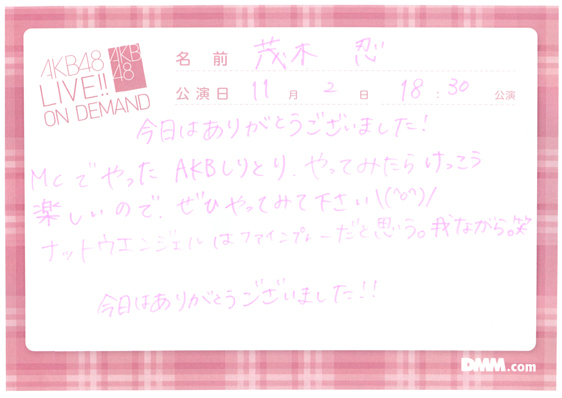 AKB48
LIVE!!
ON DEMAND
AKB
48
名 前 茂木 忍
公演日 11 月 2 日 18:30 公演
今日はありがとうございました!
MCでやった AKBしりとり、やってみたらけっこう
楽しいので、ぜひやってみて下さい\(^o^)/
ナットウエンジェルはファインプレーだと思う。我ながら。笑
今日はありがとうございました!!
DMM.com